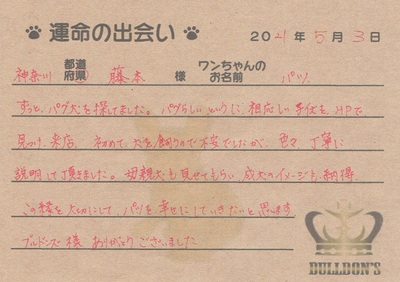 運命の出会い 2021年5月3日
神奈川 都道府県 藤本 様 ワンちゃんのお名前 パツ
ずっと、パグ犬を探してました。パグらしい 相応しい子犬をHPで
見つけ、来店。初めて、犬を飼うので不安でしたが、色々丁寧に
説明して頂きました。母親犬も見せてもらい、成犬のイメージも、納得。
この縁を大切にして、パツを幸せにしていきたいと思います
ブルドンズ様 ありがとうございました
BULLDON'S